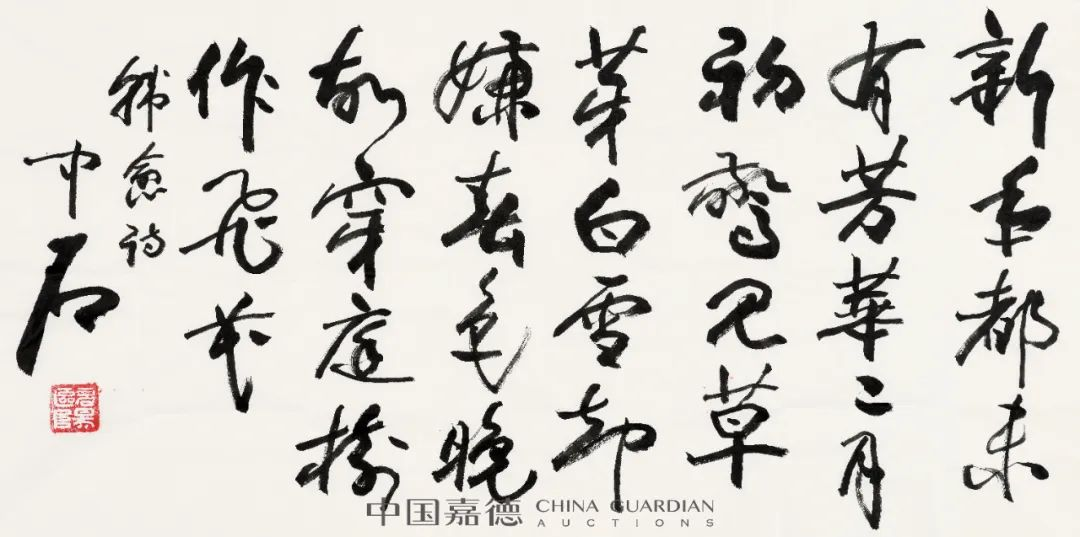 新年都未
有芳華二月
初驚見草
芽白雪却
嫌春色晚
故穿庭樹
作飛花
韓愈詩
中石
中国嘉德 CHINA GUARDIAN
AUCTIONS